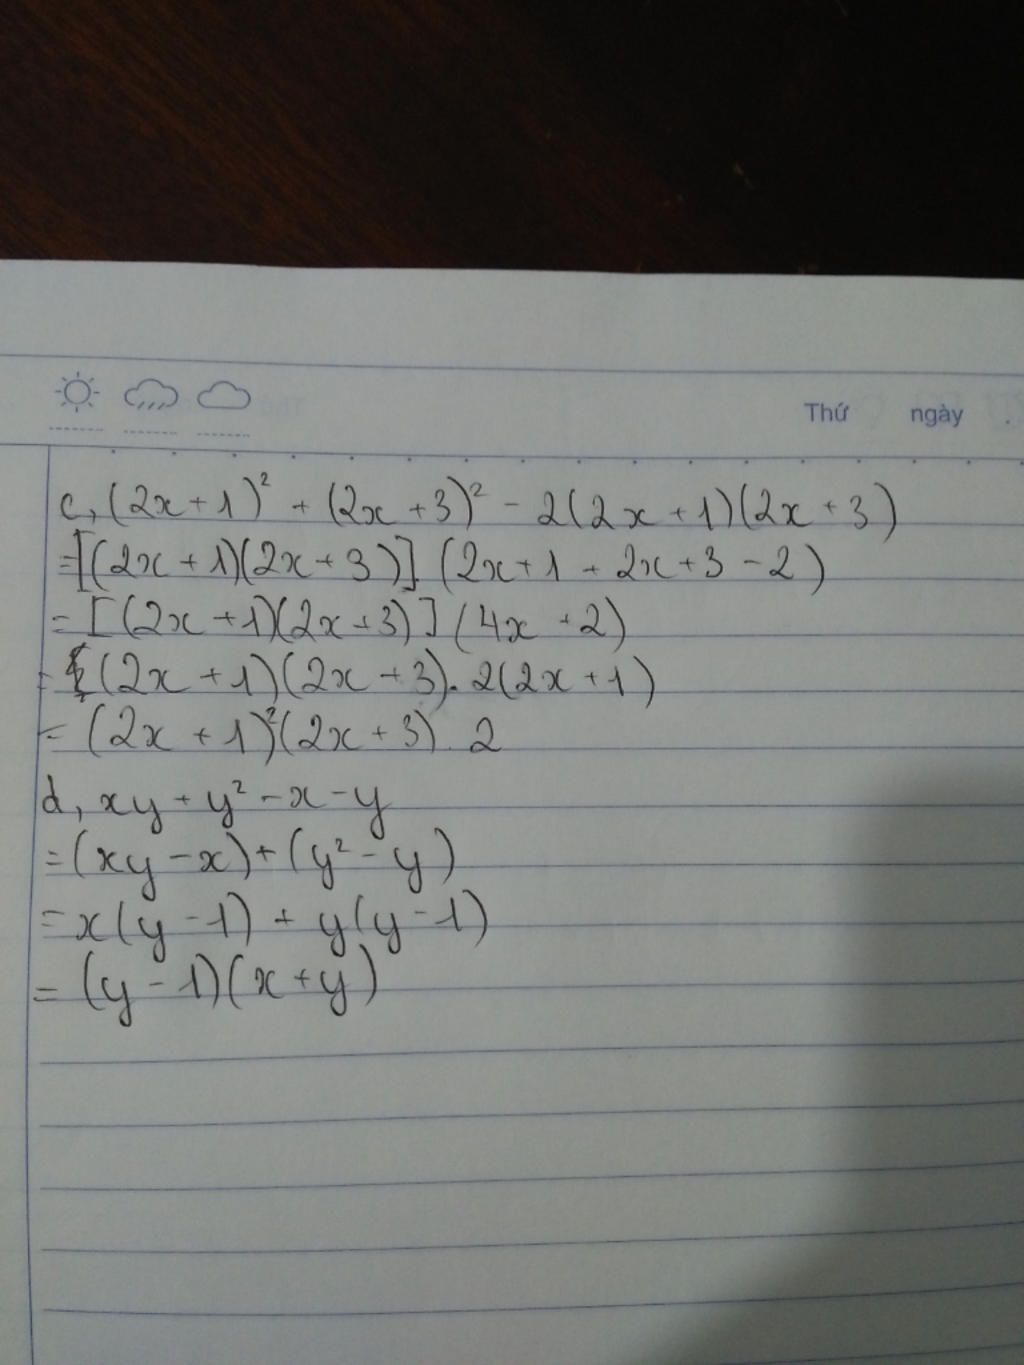 Thứ ngày .
c, (2x+1)² + (2x+3)² - 2(2x+1)(2x+3)
=[(2x+1)(2x+3)] (2x+1+2x+3-2)
= [(2x+1)(2x+3)] (4x+2)
= (2x+1)(2x+3). 2(2x+1)
= (2x+1)²(2x+3). 2
d, xy+y²-x-y
=(xy-x)+(y²-y)
=x(y-1) + y(y-1)
= (y-1)(x+y)